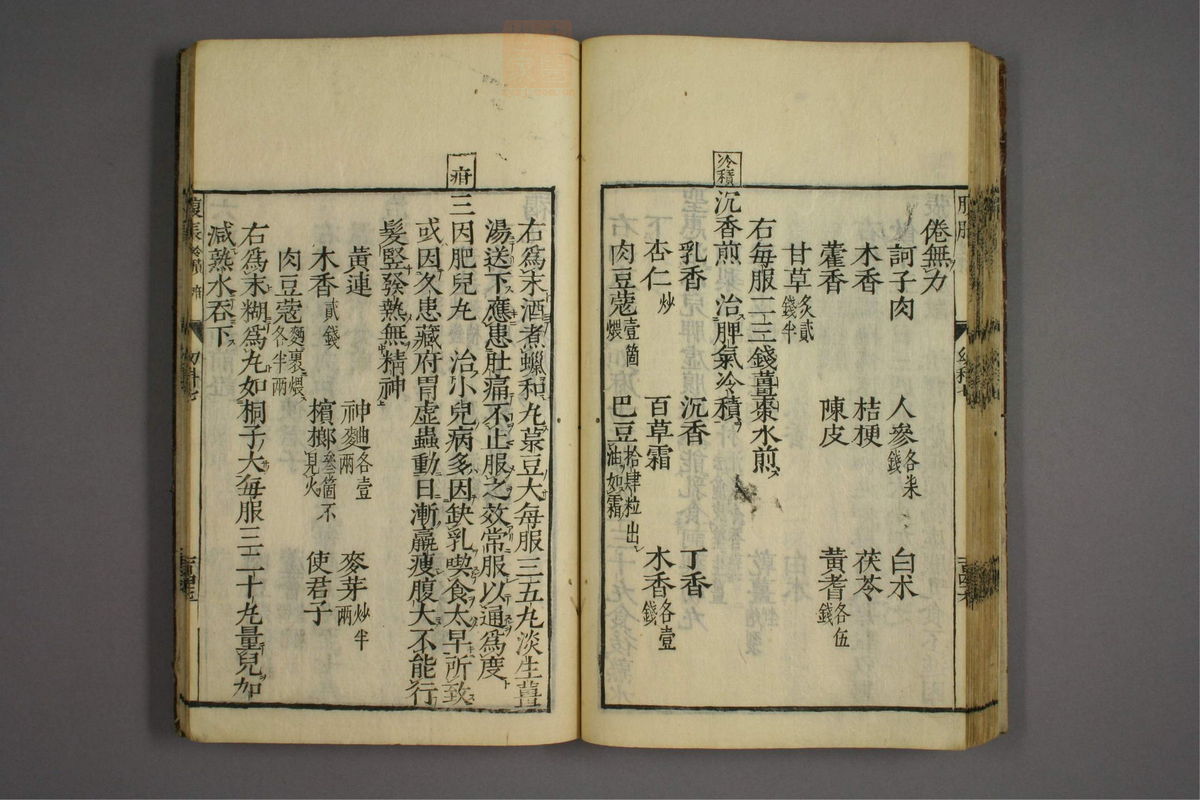 倦無力
訶子肉 人參各米錢 白朮
木香 桔梗 茯苓
藿香 陳皮 黃耆各伍錢
甘草炙貳錢半
右每服二三錢薑棗水煎
冷積
沉香煎 治脾氣冷積
乳香 沉香 丁香
杏仁炒 百草霜 木香各壹錢
肉豆蔻壹箇煨 巴豆拾肆粒出油如霜
右爲末酒煮蠟和丸菉豆大每服三五丸淡生薑
湯送下應患肚痛不止服之效常服以通爲度
疳
三因肥兒丸 治小兒病多因缺乳喫食太早所致
或因久患藏府胃虛蟲動日漸羸瘦腹大不能行
髮竪發熱無精神
黃連 神曲各壹兩 麥芽炒半兩
木香貳錢 檳榔叄箇不見火 使君子
肉豆蔻麵裹煨各半兩
右爲末糊爲丸如桐子大每服三二十丸量兒加
減熟水吞下